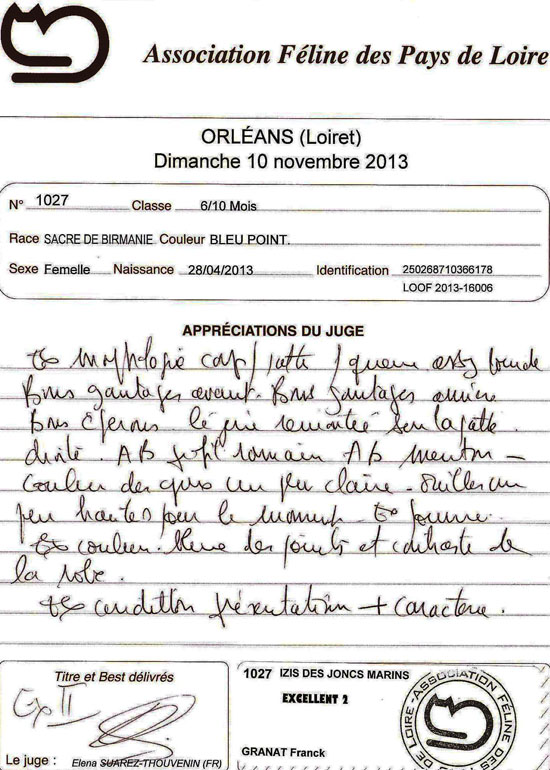 Association Féline des Pays de Loire
ORLÉANS (Loiret)
Dimanche 10 novembre 2013
N° 1027 Classe 6/10 Mois
Race SACRE DE BIRMANIE Couleur BLEU POINT.
Sexe Femelle Naissance 28/04/2013 Identification 250268710366178
LOOF 2013-16006
APPRÉCIATIONS DU JUGE
TB morphologie corps / patte / queue assez
Bons gantages avant. Bons gantages arrière
Bons éperons. remontée sur la patte
droite. AB profil romain AB menton –
Couleur des yeux un peu claire. Oreilles un
peu hautes pour le moment. TB fourrure.
TB couleur bleue des points et contraste de
la robe.
TB condition présentation + caractère.
Titre et Best délivrés
Ex II
Le juge : Elena SUAREZ-THOUVENIN (FR)
1027 IZIS DES JONCS MARINS
EXCELLENT 2
GRANAT Franck
ASSOCIATION FÉLINE DES PAYS DE LOIRE